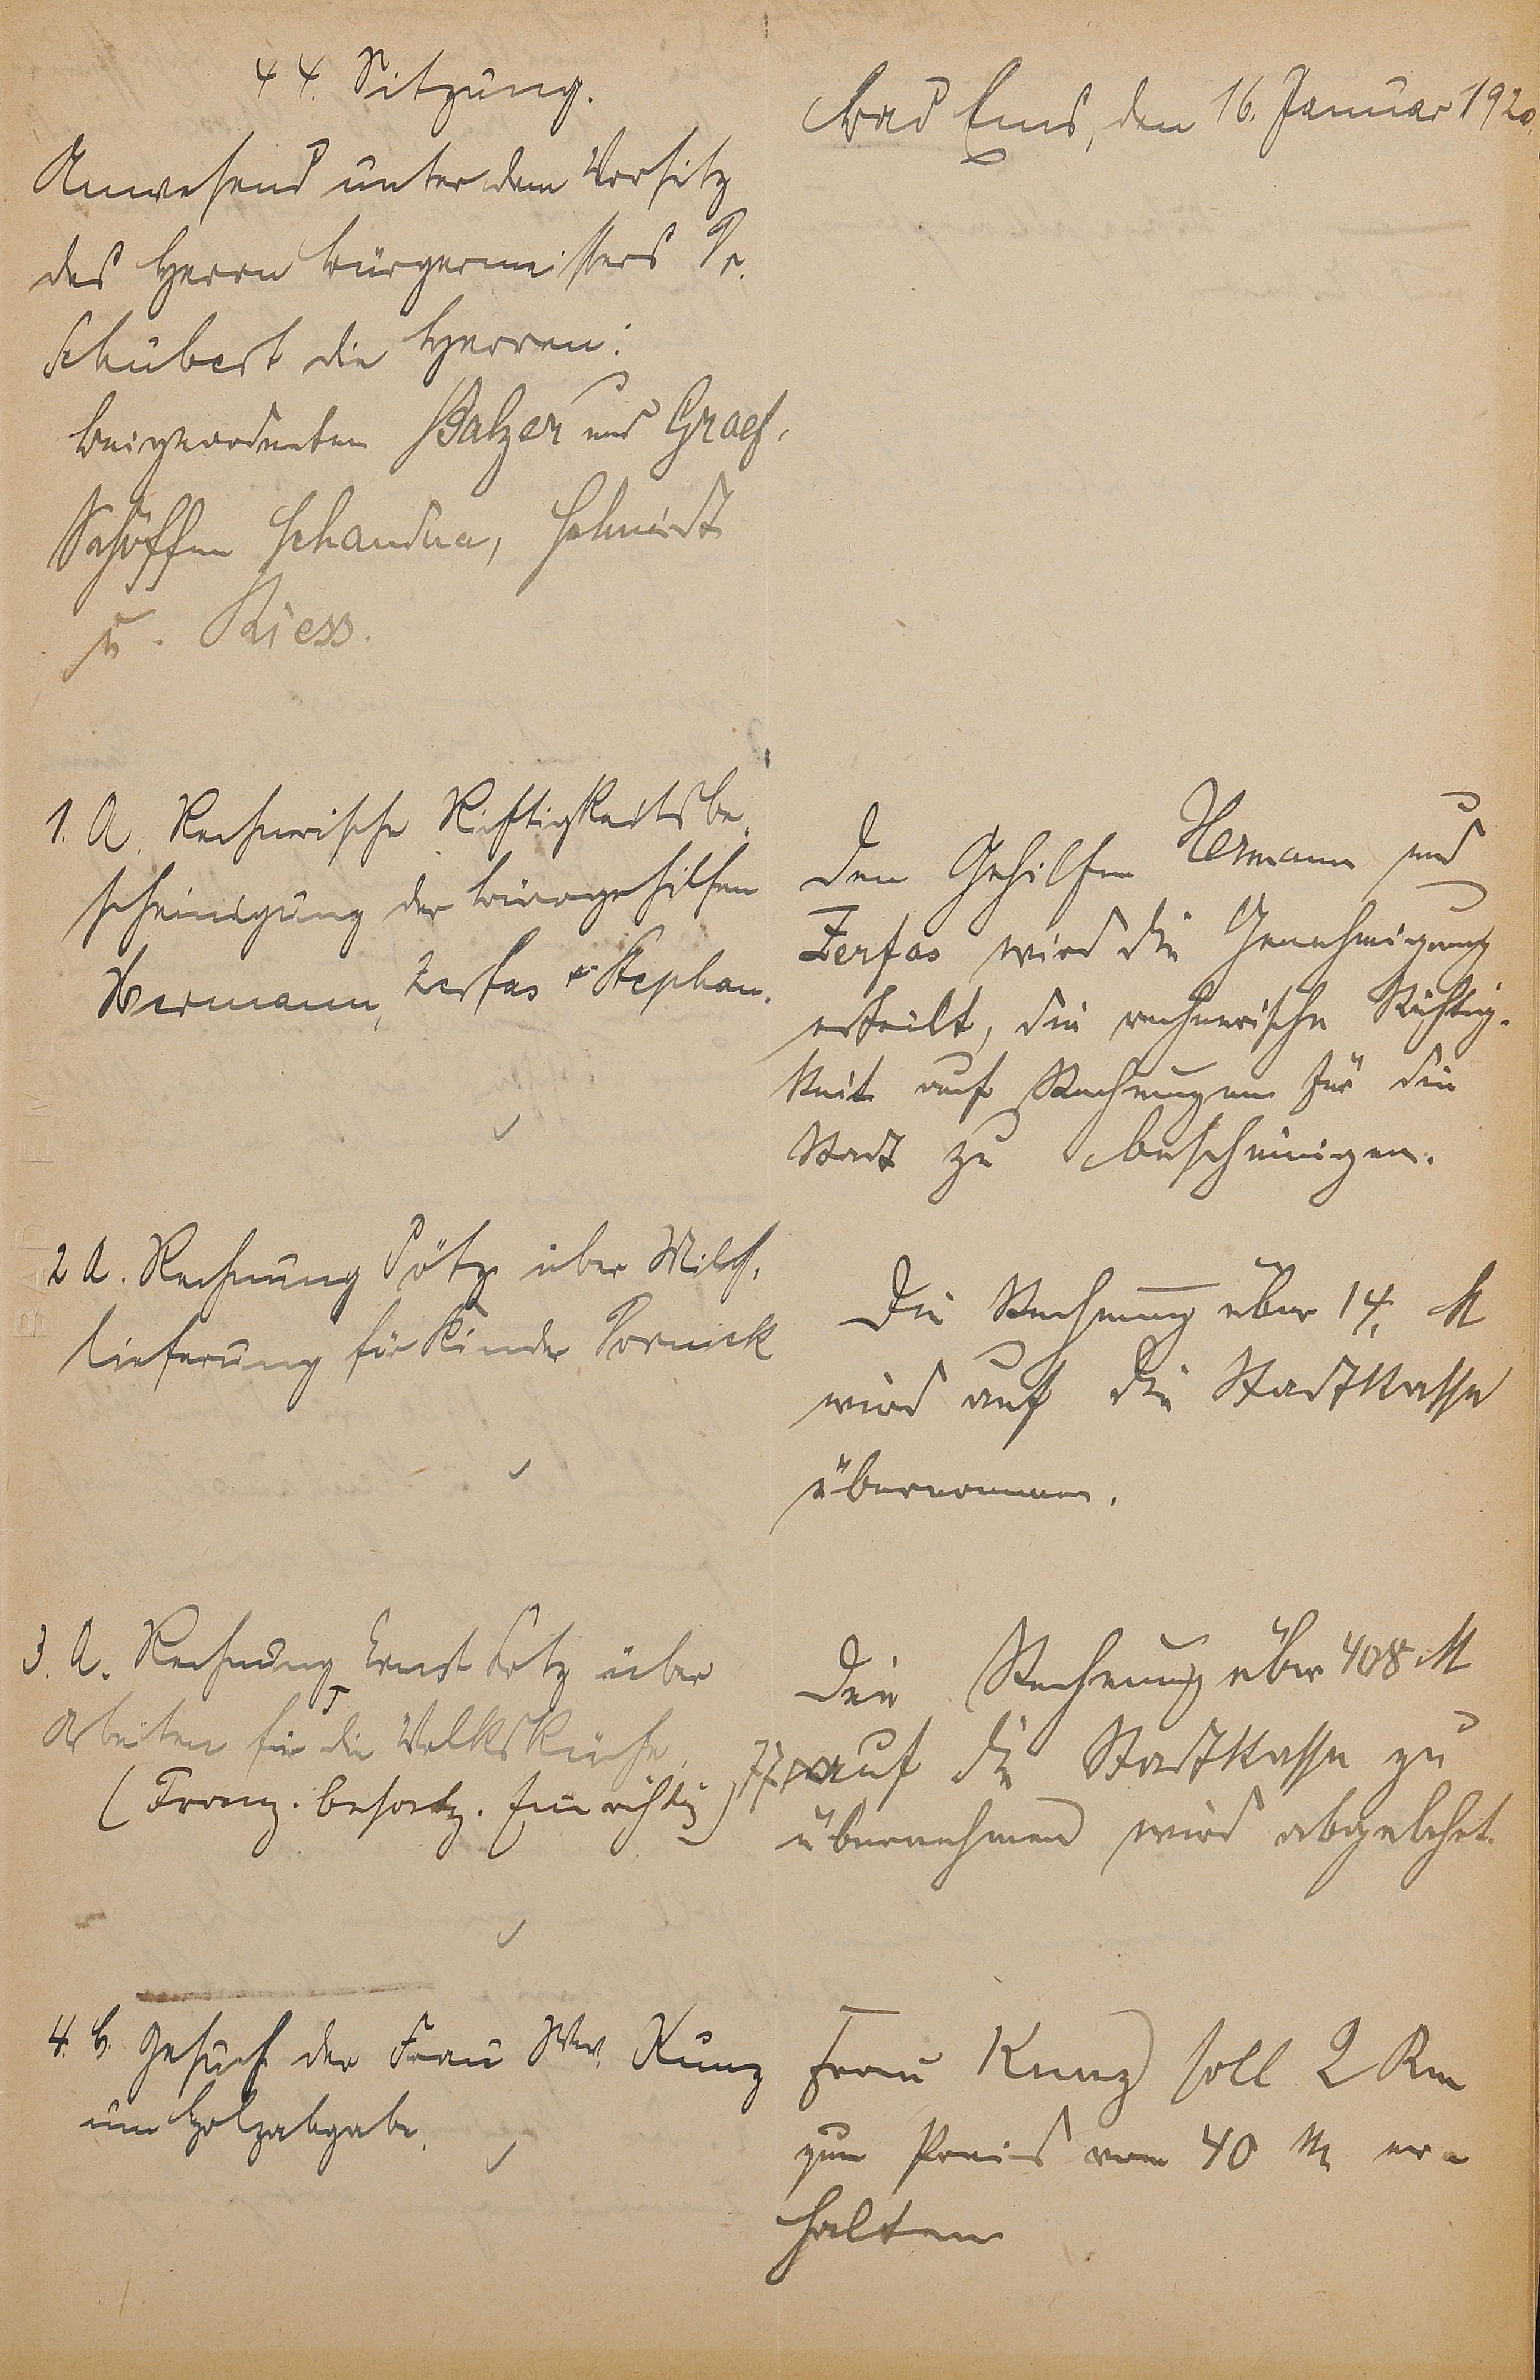 44. Sitzung.
Anwesend unter dem Vorsitz
des Herrn Bürgermeisters Dr.
Schubert die Herren:
Beigeordneten Balzer und Graef,
Schöffen Schandua, Schmidt
u. Riess.
Bad Ems, den 16. Januar 1920
1. A. Rechnerische Richtigkeitsbe-
scheinigung der Bürogehilfen
Hermann, Zerfas u. Stephan.
Den Gehilfen Hermann und
Zerfas wird die Genehmigung
erteilt, die rechnerische Richtig-
keit auf Rechnungen für die
Stadt zu bescheinigen.
2 A. Rechnung Pötz über Milch-
lieferung für Kinder Pornick
Die Rechnung über 14, M
wird auf die Stadtkasse
übernommen.
3. A. Rechnung Ernst Pötz über
Arbeiten für die Volksküche.
(Franz. Besatz. Einrichtg)
Die Rechnung über 408 M
77 auf die Stadtkasse zu
übernehmen wird abgelehnt.
4. B. Gesuch der Frau Ww. Kunz
um Holzabgabe.
Frau Kunz soll 2 Rm
zum Preis von 40 M er-
halten